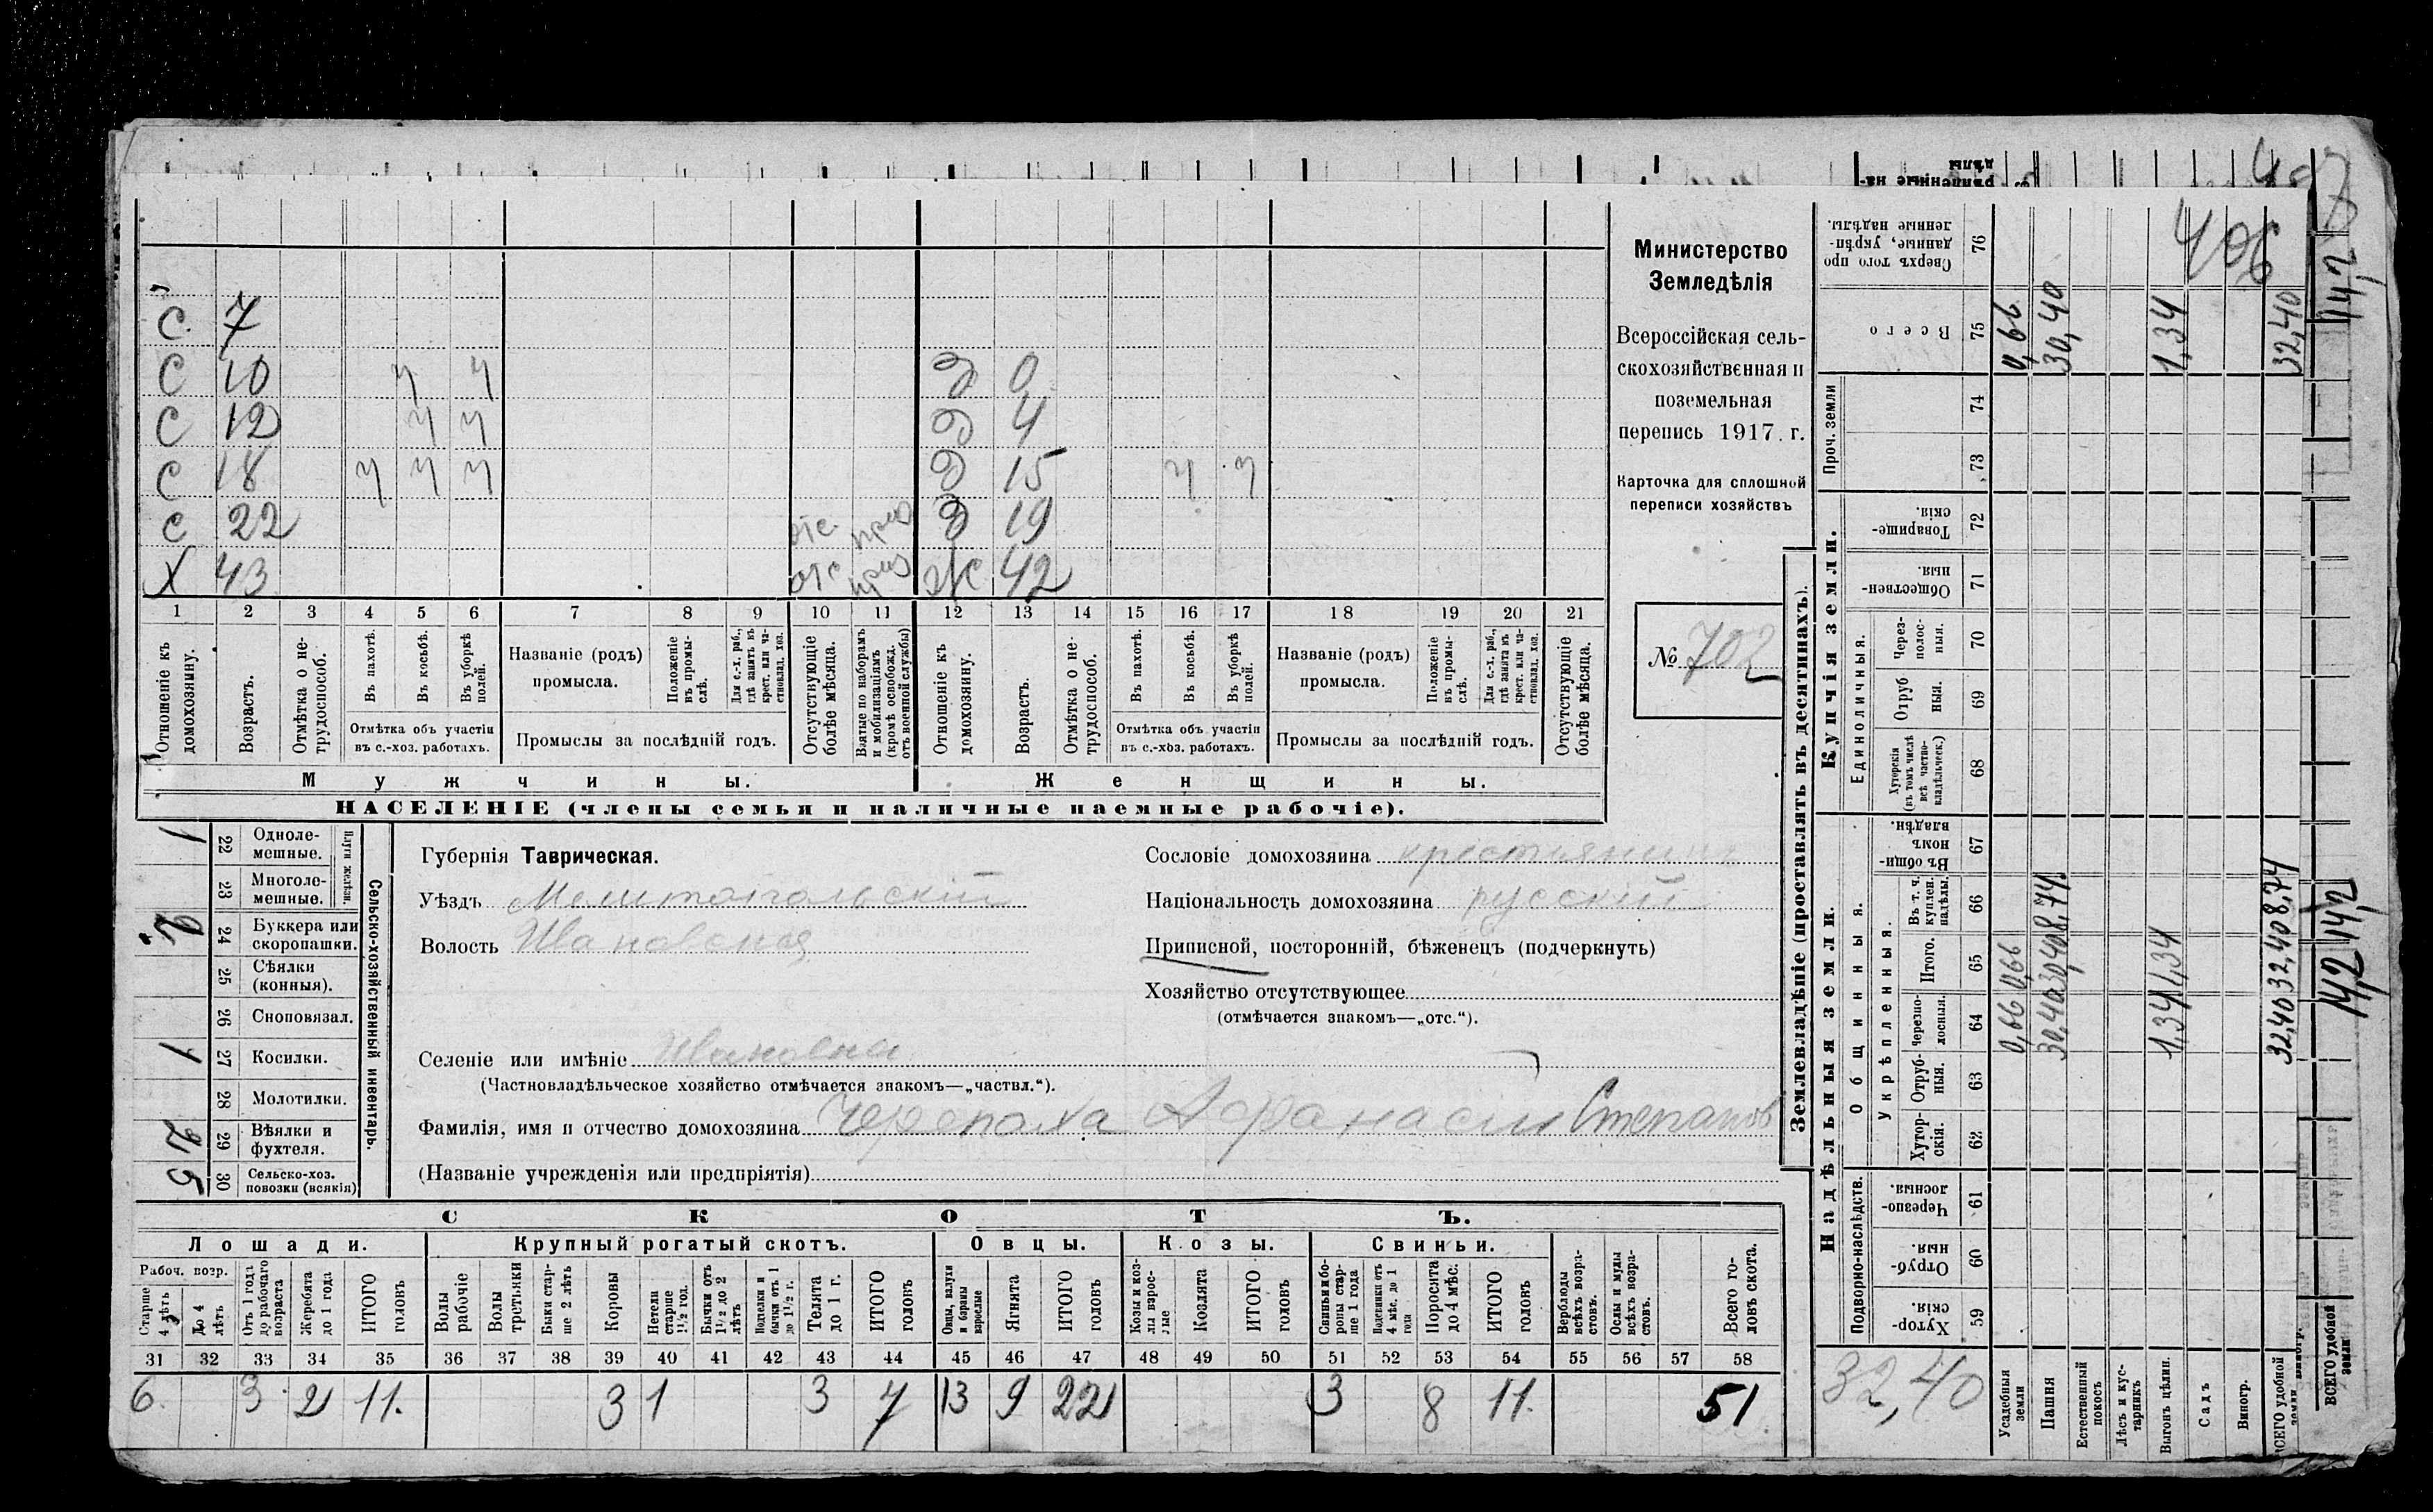 406
С 7
С 10 ч ч Д 0
С 12 ч ч Д 4
С 18 ч ч ч Д 15 ч ч
С 22 отс. Д 19
Х 43 отс ж 42
1 2 3 4 5 6 7 8 9 10 11 12 13 14 15 16 17 18 19 20 21
Отношеніе къ домохозяину.
Возрастъ.
Отмѣтка о нетрудоспособ.
Въ пахотѣ.
Въ косьбѣ.
Въ уборкѣ полей.
Отмѣтка объ участіи
въ с.-хоз. работахъ.
Названіе (родъ)
промысла.
Положеніе въ промыслѣ.
Для с.-х. раб., гдѣ занятъ въ крест. или частновлад. хоз.
Промыслы за послѣдній годъ.
Отсутствующіе болѣе мѣсяца.
Взятые по наборамъ и мобилизаціямъ (кромѣ освобожд. отъ военной службы)
Отношеніе къ домохозяину.
Возрастъ.
Отмѣтка о нетрудоспособ.
Въ пахотѣ.
Въ косьбѣ.
Въ уборкѣ полей.
Отмѣтка объ участіи
въ с.-хоз. работахъ.
Названіе (родъ)
промысла.
Положеніе въ промыслѣ.
Для с.-х. раб., гдѣ занята въ крест. или частновлад. хоз.
Промыслы за послѣдній годъ.
Отсутствующіе болѣе мѣсяца.
Мужчины. Женщины.
НАСЕЛЕНІЕ (члены семьи и наличные наемные рабочіе).
Министерство
Земледѣлія
Всероссійская сель-
скохозяйственная и
поземельная
перепись 1917 г.
Карточка для сплошной
переписи хозяйствъ
№ 702
Сельско-хозяйственный инвентарь.
Плуги желѣзн.
1 22 Одноле-
мешные.
23 Многоле-
мешные.
2 24 Буккера или
скоропашки.
25 Сѣялки
(конныя).
26 Сноповязал.
1 27 Косилки.
28 Молотилки.
2 29 Вѣялки и
фухтеля.
5 30 Сельско-хоз.
повозки (всякія)
Губернія Таврическая.
Уѣздъ Мелитопольскій
Волость Ивановская
Сословіе домохозяина крестьянинъ
Національность домохозяина русскій
Приписной, посторонній, бѣженецъ (подчеркнуть)
Хозяйство отсутствующее
(отмѣчается знакомъ—„отс.“).
Селеніе или имѣніе Ивановка
(Частновладѣльческое хозяйство отмѣчается знакомъ—„частвл.“).
Фамилія, имя и отчество домохозяина Черепаха Афанасій Степанов
(Названіе учрежденія или предпріятія)
СКОТЪ.
Лошади. Крупный рогатый скотъ. Овцы. Козы. Свиньи.
Рабоч. возр.
Старше 4 лѣтъ
До 4 лѣтъ
Отъ 1 года до рабочаго возраста
Жеребята до 1 года
ИТОГО головъ
Волы рабочіе
Волы третьяки
Быки старше 2 лѣтъ
Коровы
Нетели старше 1½ год.
Бычки отъ 1½ до 2 лѣтъ
Подтелки и бычки отъ 1 до 1½ г.
Телята до 1 г.
ИТОГО головъ
Овцы, валухи и бараны взрослые
Ягнята
ИТОГО головъ
Козы и козлы взрослые
Козлята
ИТОГО головъ
Свиньи и боровы старше 1 года
Подсвинки отъ 4 мѣс. до 1 года
Поросята до 4 мѣс.
ИТОГО головъ
Верблюды всѣхъ возрастовъ.
Ослы и мулы всѣхъ возрастовъ.
Всего головъ скота.
31 32 33 34 35 36 37 38 39 40 41 42 43 44 45 46 47 48 49 50 51 52 53 54 55 56 57 58
6 3 2 11. 3 1 3 7 13 9 22 3 8 11 51
Землевладѣніе (проставлять въ десятинахъ).
Надѣльныя земли. Купчія земли. Проч. земли
Подворно-наслѣдств.
Общинныя.
Укрѣпленныя.
Единоличныя.
Хуторскія. 59
Отрубныя. 60
Черезполосныя. 61
Хуторскія. 62
Отрубныя. 63
Черезполосныя. 64
Итого. 65
Въ т. ч. куплен. надѣлы. 66
Въ общинномъ владѣн. 67
Хуторскія (въ томъ числѣ всѣ частновладѣльческ.) 68
Отрубныя. 69
Черезполосныя. 70
Общественныя. 71
Товарищескія. 72
73
74
Всего 75
Сверхъ того проданные, укрѣпленные надѣлы. 76
32,40
Усадебныя земли 0,66 0,66 0,66
Пашня 30,40 30,40 8,74. 30,40
Естественный покосъ
Лѣсъ и кустарникъ
Выгонъ цѣлин. 1,34 1,34 1,34
Садъ
Виногр.
ВСЕГО удобной земли 32,40 32,40 8,74 32,40
ВСЕГО удобной земли 14,2 14,2 14,2